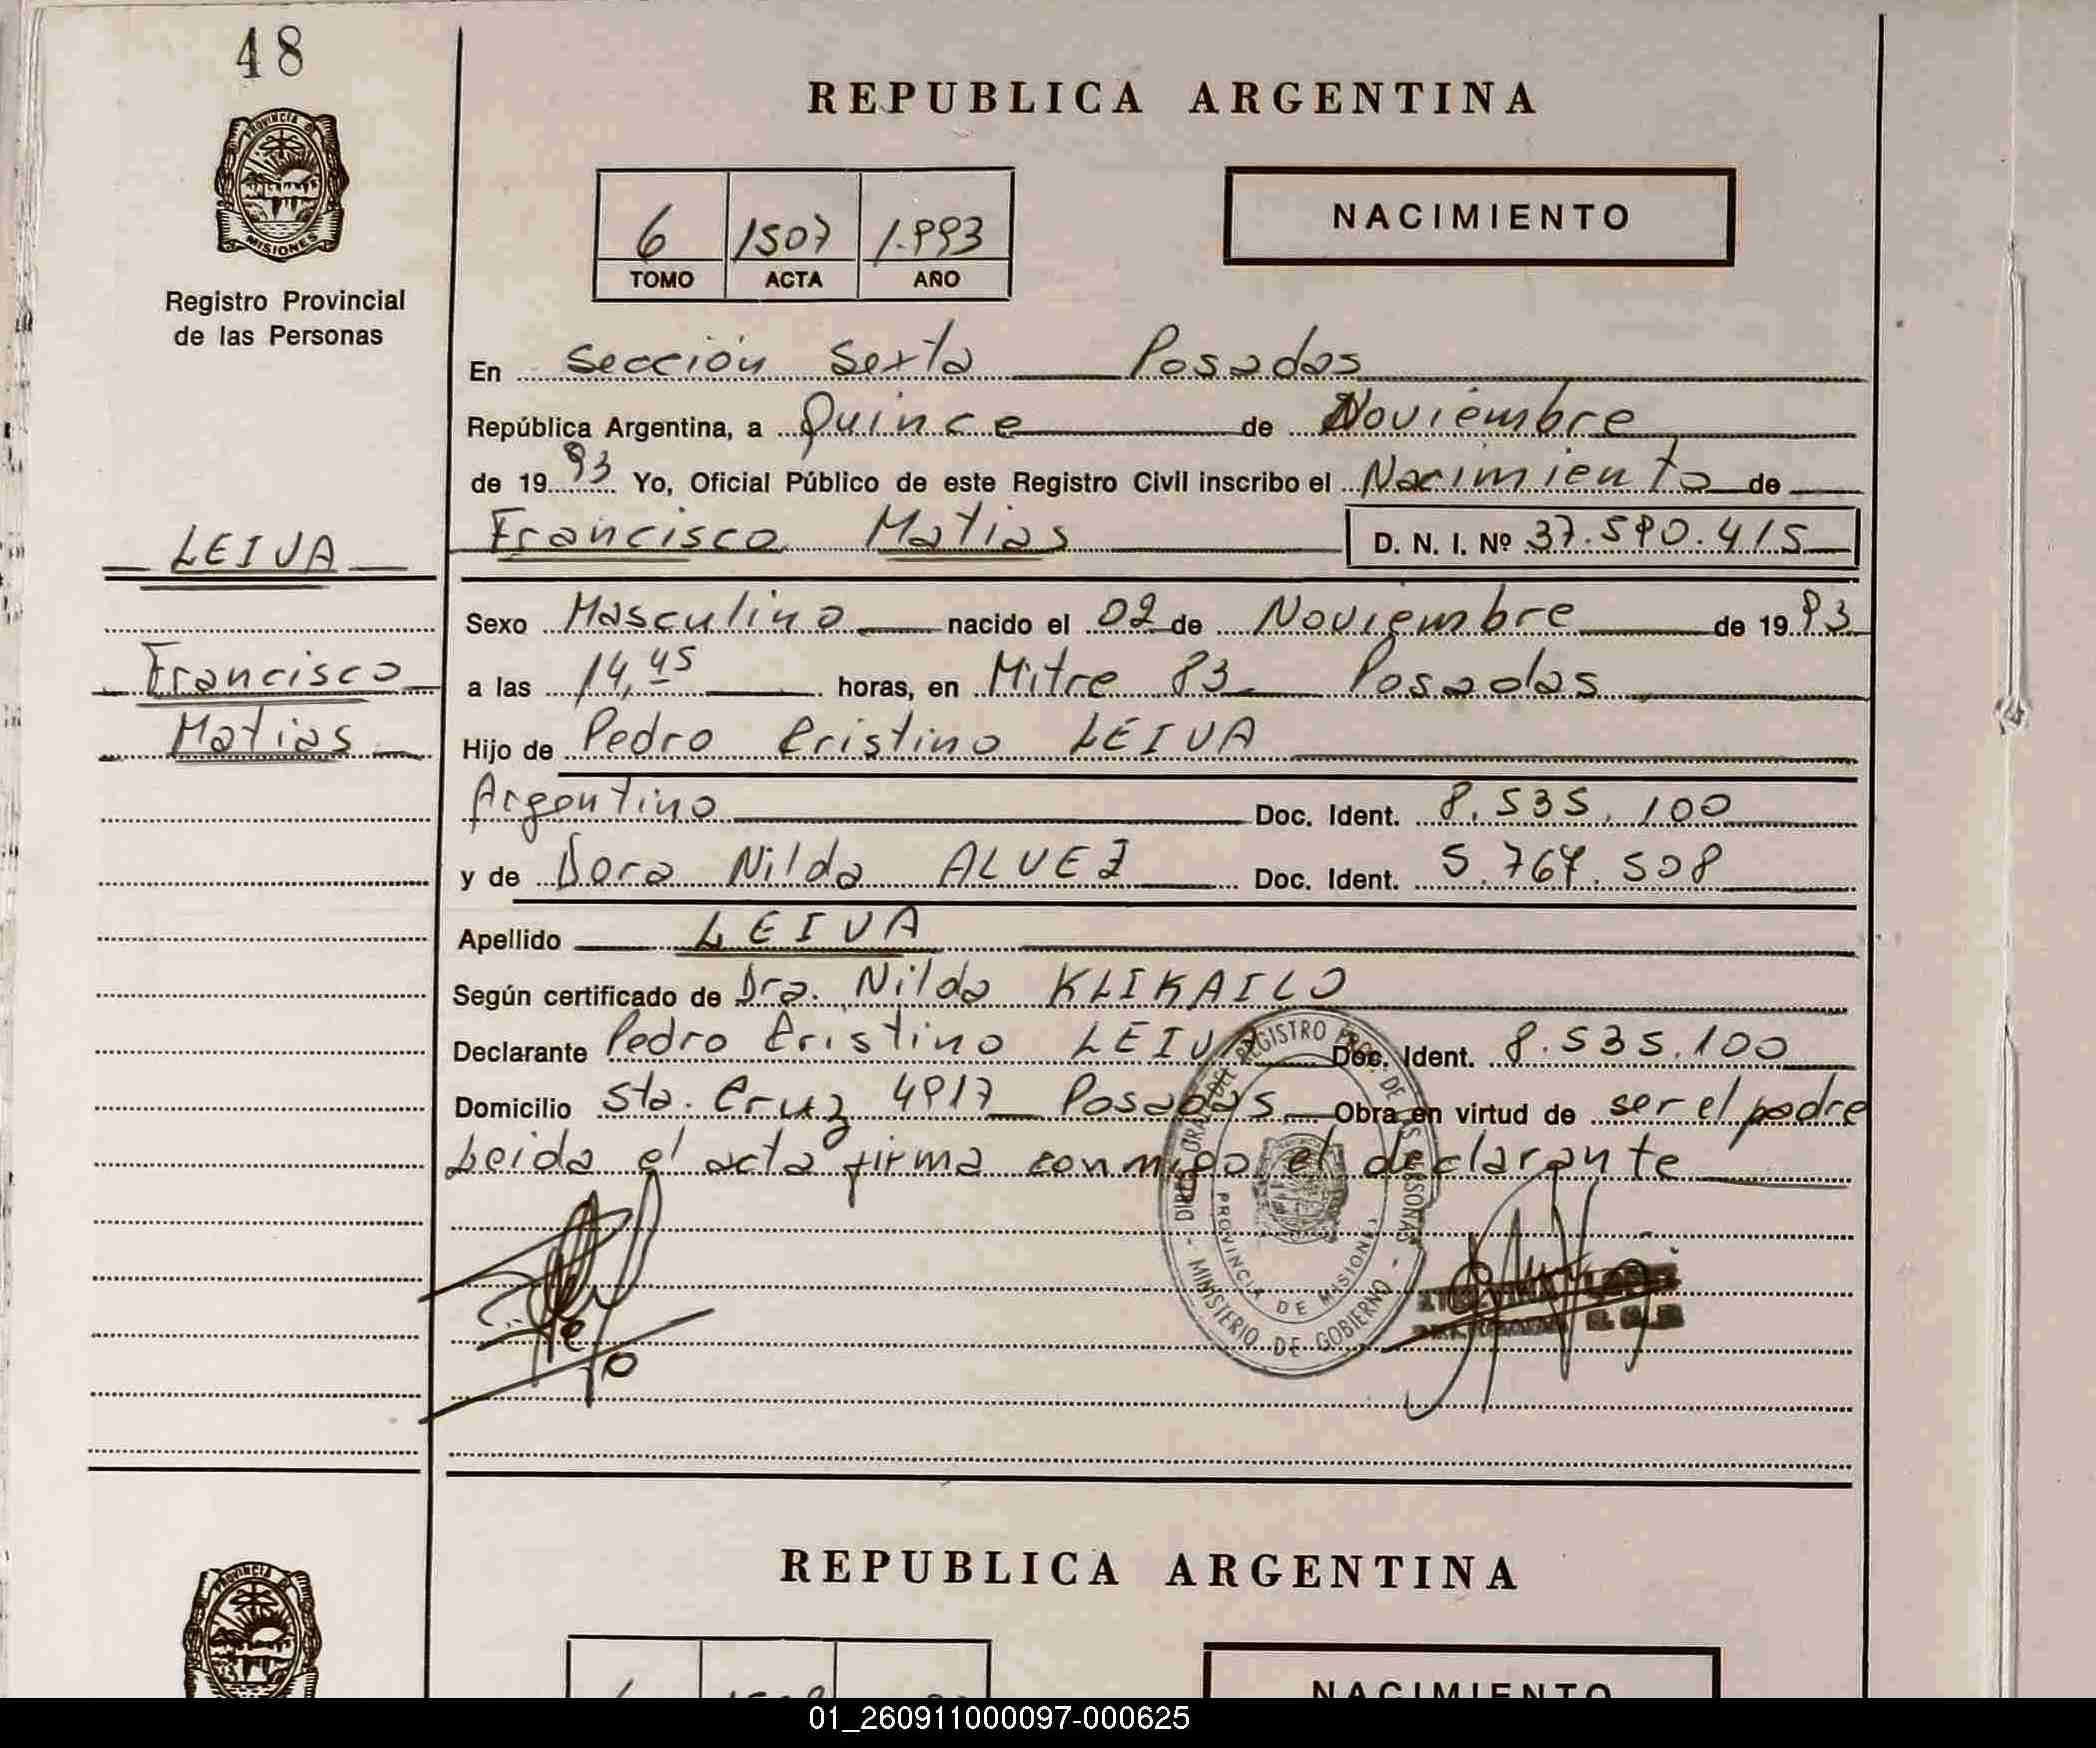 48
REPUBLICA ARGENTINA
PROVINCIA DE
MISIONES
Registro Provincial
de las Personas
6 1507 1.993
TOMO ACTA AÑO
NACIMIENTO
En Sección Sexta Posadas
República Argentina, a Quince de Noviembre
de 1993 Yo, Oficial Público de este Registro Civil inscribo el Nacimiento de
LEIVA
Francisco Matias D. N. I. Nº 37.590.415
Sexo Masculino nacido el 02 de Noviembre de 1993
Francisco
a las 14,45 horas, en Mitre 83 Posadas
Matias
Hijo de Pedro Cristino LEIVA
Argentino Doc. Ident. 8.535.100
y de Dora Nilda ALVEZ Doc. Ident. 5.767.508
Apellido LEIVA
Según certificado de Dra. Nilda KLIKAILO
Declarante Pedro Cristino LEIVA Doc. Ident. 8.535.100
Domicilio Sta. Cruz 4917 Posadas Obra en virtud de ser el padre
Leida el acta firma conmigo el declarante
REGISTRO PROV. DE LAS PERSONAS
PROVINCIA DE MISIONES
MINISTERIO DE GOBIERNO
REPUBLICA ARGENTINA
PROVINCIA DE
NACIMIENTO
01_260911000097-000625